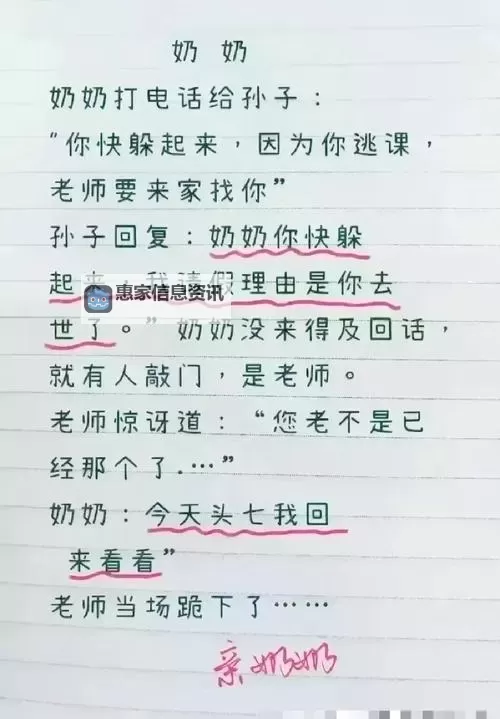 奶奶
奶奶打电话给孙子：
“你快躲起来，因为你逃课，
老师要来家找你”
孙子回复：奶奶你快躲
起来，我请假理由是你去
惠家信息资讯
世了。”奶奶没来得及回话，
就有人敲门，是老师。
老师惊讶道：“您老不是已
经那个了.…”
奶奶：今天头七我回
来看看”
老师当场跪下了……
亲奶奶